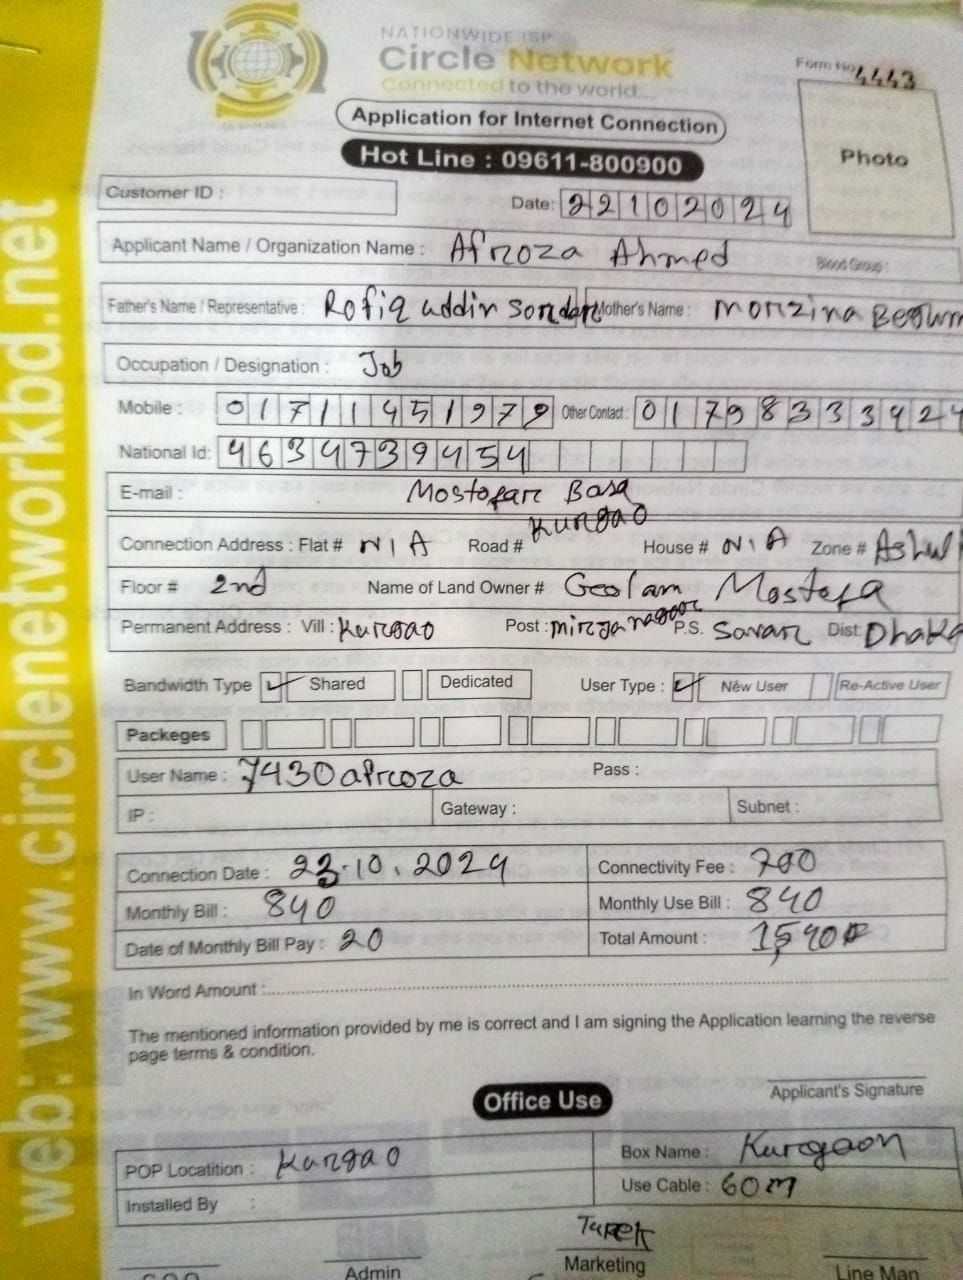 NATIONWIDE ISP
Circle Network
Connected to the world....
Form No 4443
Application for Internet Connection
Photo
Hot Line : 09611-800900
Customer ID :
Date: 22102024
Applicant Name / Organization Name : Afroza Ahmed
Blood Group :
Father's Name / Representative : Rofiq uddin Mother's Name : Monzina Begum
Occupation / Designation : Job
Mobile : 01711451979 Other Contact : 01798333424
National Id: 4634739454
E-mail :
Mostofar Basa
Connection Address : Flat # N/A Road # Kurgao House # N/A Zone #
Floor # 2nd Name of Land Owner # Golam Mostofa
Permanent Address : Vill : Kurgao Post : mirzanagor P.S. Savar Dist: Dhaka
Bandwidth Type Shared Dedicated User Type : New User Re-Active User
Packeges
User Name : 7430afroza Pass :
IP : Gateway : Subnet :
Connection Date : 23.10.2024 Connectivity Fee : 700
Monthly Bill : 840 Monthly Use Bill : 840
Date of Monthly Bill Pay : 20 Total Amount : 1,540
In Word Amount :
The mentioned information provided by me is correct and I am signing the Application learning the reverse
page terms & condition.
Applicant's Signature
Office Use
POP Locatition : Kurgao Box Name : Kurgaon
Installed By : Use Cable : 60m
Tarek
Admin Marketing Line Man
web: www.circlenetworkbd.net